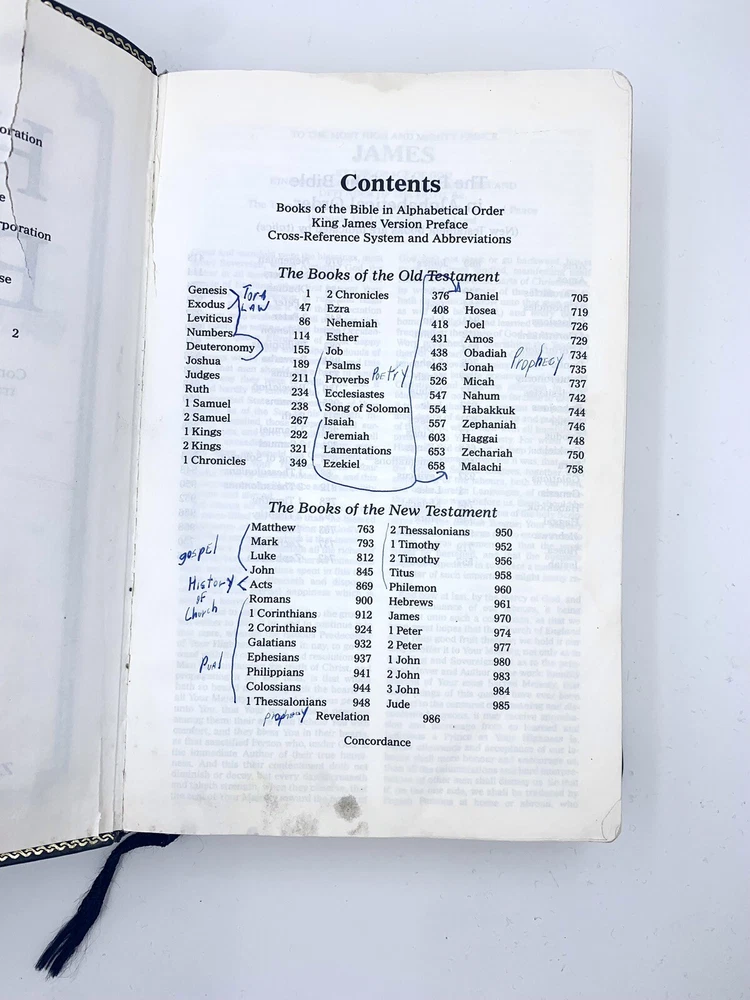 oration
e
poration
se
2
Contents
Books of the Bible in Alphabetical Order
King James Version Preface
Cross-Reference System and Abbreviations
The Books of the Old Testament
Genesis 1
Exodus 47
Leviticus 86
Numbers 114
Deuteronomy 155
Joshua 189
Judges 211
Ruth 234
1 Samuel 238
2 Samuel 267
1 Kings 292
2 Kings 321
1 Chronicles 349
Tora
LAW
2 Chronicles 376
Ezra 408
Nehemiah 418
Esther 431
Job 438
Psalms 463
Proverbs 526
Ecclesiastes 547
Song of Solomon 554
Isaiah 557
Jeremiah 603
Lamentations 653
Ezekiel 658
Poetry
Daniel 705
Hosea 719
Joel 726
Amos 729
Obadiah 734
Jonah 735
Micah 737
Nahum 742
Habakkuk 744
Zephaniah 746
Haggai 748
Zechariah 750
Malachi 758
Prophecy
The Books of the New Testament
Matthew 763
Mark 793
Luke 812
John 845
Acts 869
Romans 900
1 Corinthians 912
2 Corinthians 924
Galatians 932
Ephesians 937
Philippians 941
Colossians 944
1 Thessalonians 948
gospel
History
of
Church
2 Thessalonians 950
1 Timothy 952
2 Timothy 956
Titus 958
Philemon 960
Hebrews 961
James 970
1 Peter 974
2 Peter 977
1 John 980
2 John 983
3 John 984
Jude 985
prophecy Revelation 986
Concordance